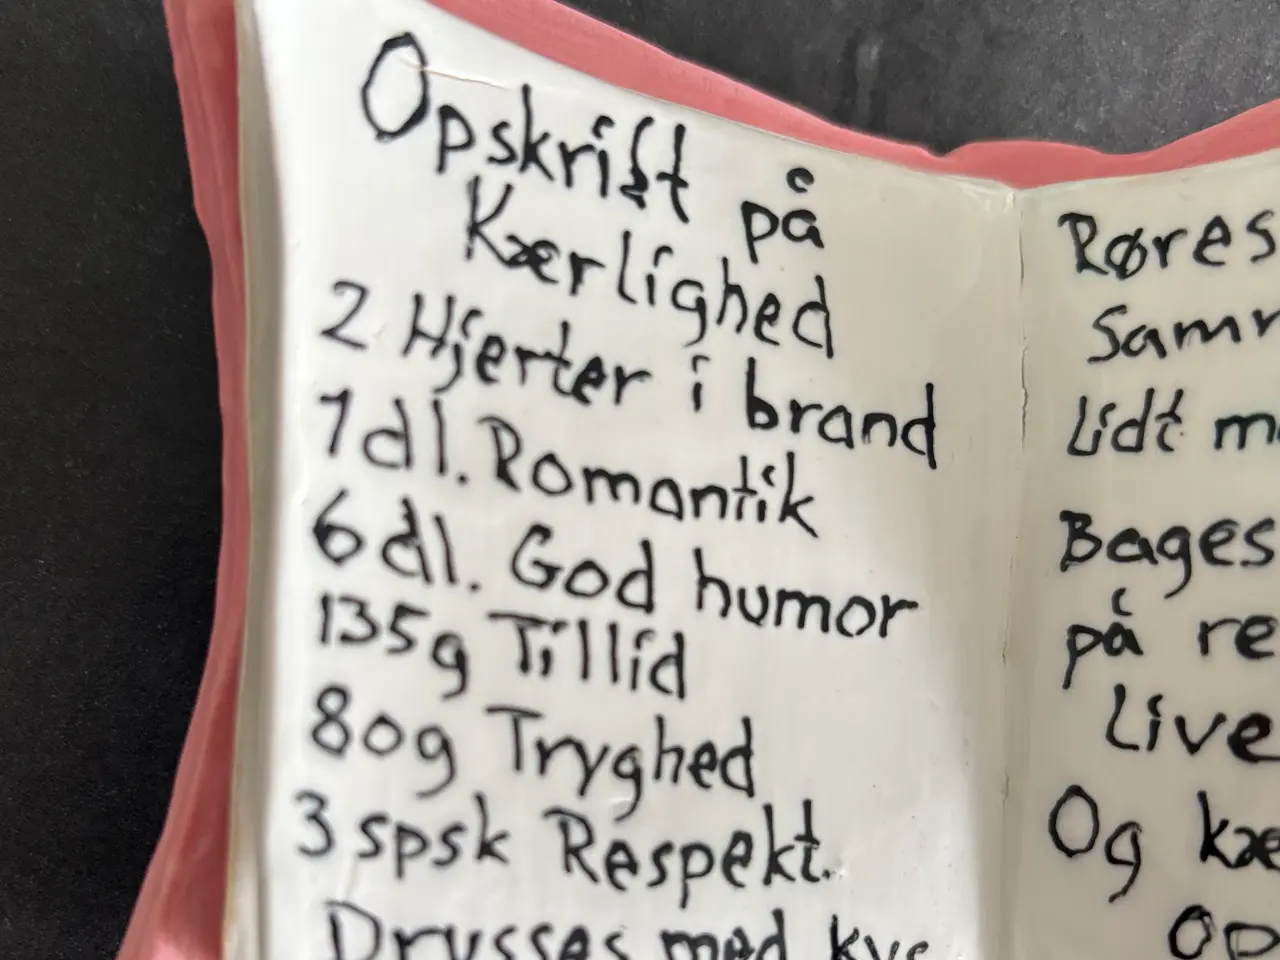 Opskrift på
Kærlighed
2 Hjerter i brand
1 dl. Romantik
6 dl. God humor
135g Tillid
80g Tryghed
3 spsk Respekt.
Drysses med
Røres
Lidt
Bages
på
Og